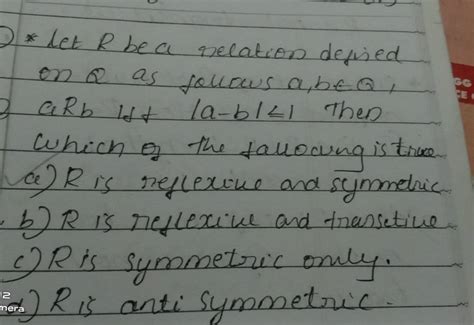 * Let R be a relation defined
on Q as follows a, b ∈ Q,
aRb iff |a-b| ≤ 1 Then
which of the following is true
a) R is reflexive and symmetric
b) R is reflexive and transetive
c) R is symmetric only.
d) R is anti symmetric.